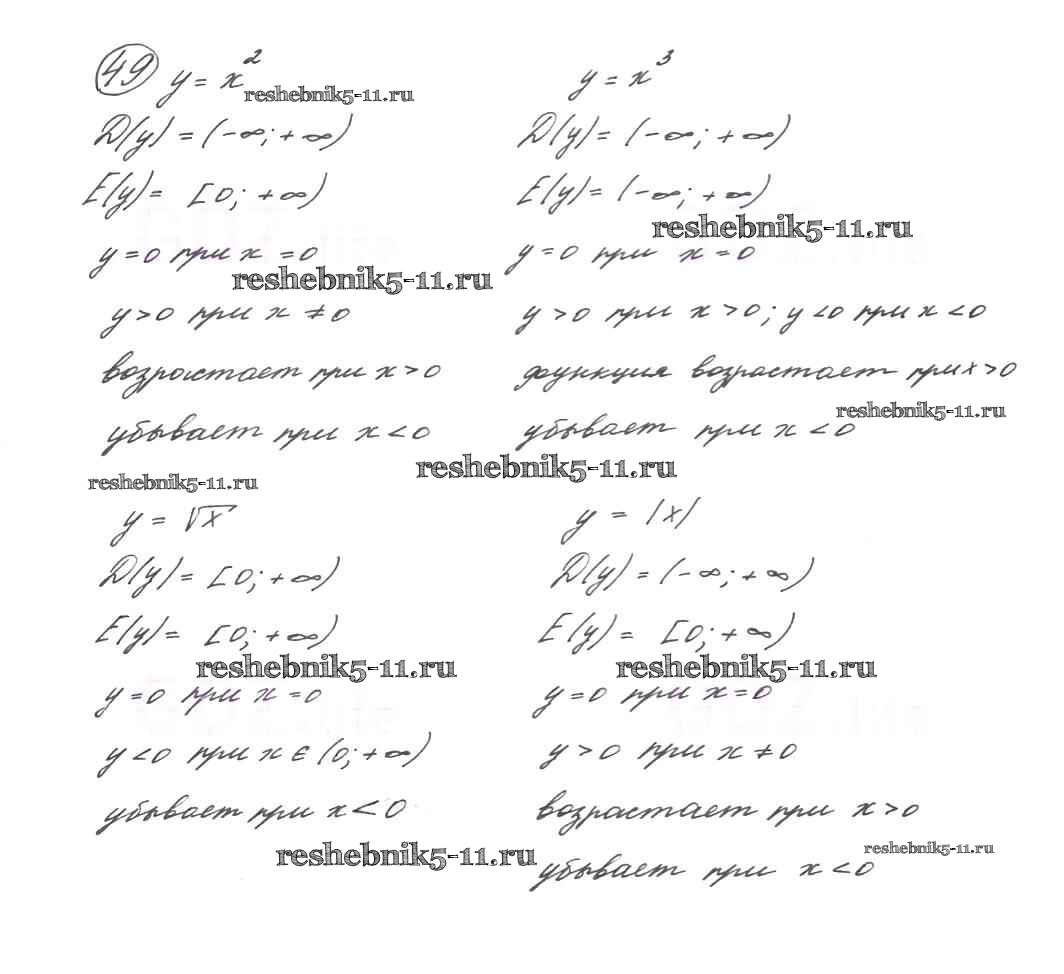 49 y = x²
reshebnik5-11.ru
D(y) = (-∞; +∞)
E(y) = [0; +∞)
y = 0 при x = 0
reshebnik5-11.ru
y > 0 при x ≠ 0
возростает при x > 0
убывает при x < 0
reshebnik5-11.ru
y = x³
D(y) = (-∞; +∞)
E(y) = (-∞; +∞)
reshebnik5-11.ru
y = 0 при x = 0
y > 0 при x > 0; y < 0 при x < 0
функция возрастает при x > 0
reshebnik5-11.ru
убывает при x < 0
reshebnik5-11.ru
y = √x
D(y) = [0; +∞)
E(y) = [0; +∞)
reshebnik5-11.ru
y = 0 при x = 0
y < 0 при x ∈ (0; +∞)
убывает при x < 0
reshebnik5-11.ru
y = |x|
D(y) = (-∞; +∞)
E(y) = [0; +∞)
reshebnik5-11.ru
y = 0 при x = 0
y > 0 при x ≠ 0
возрастает при x > 0
reshebnik5-11.ru
убывает при x < 0